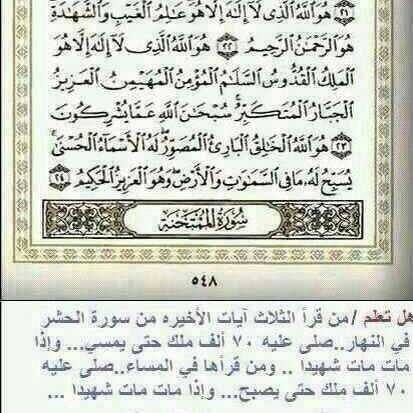 ﴿٢١﴾ هُوَ ٱللَّهُ ٱلَّذِى لَآ إِلَٰهَ إِلَّا هُوَ عَٰلِمُ ٱلْغَيْبِ وَٱلشَّهَٰدَةِ
هُوَ ٱلرَّحْمَٰنُ ٱلرَّحِيمُ ﴿٢٢﴾ هُوَ ٱللَّهُ ٱلَّذِى لَآ إِلَٰهَ إِلَّا هُوَ
ٱلْمَلِكُ ٱلْقُدُّوسُ ٱلسَّلَٰمُ ٱلْمُؤْمِنُ ٱلْمُهَيْمِنُ ٱلْعَزِيزُ
ٱلْجَبَّارُ ٱلْمُتَكَبِّرُ ۚ سُبْحَٰنَ ٱللَّهِ عَمَّا يُشْرِكُونَ
﴿٢٣﴾ هُوَ ٱللَّهُ ٱلْخَٰلِقُ ٱلْبَارِئُ ٱلْمُصَوِّرُ ۖ لَهُ ٱلْأَسْمَآءُ ٱلْحُسْنَىٰ ۚ
يُسَبِّحُ لَهُۥ مَا فِى ٱلسَّمَٰوَٰتِ وَٱلْأَرْضِ ۖ وَهُوَ ٱلْعَزِيزُ ٱلْحَكِيمُ ﴿٢٤﴾
سُورَةُ المُمْتَحنَة
٥٤٨
هل تعلم /من قرأ الثلاث آيات الأخيره من سورة الحشر
في النهار..صلى عليه ٧٠ ألف ملك حتى يمسي... وإذا
مات مات شهيدا .. ومن قرأها في المساء..صلى عليه
٧٠ ألف ملك حتى يصبح... وإذا مات مات شهيدا ...